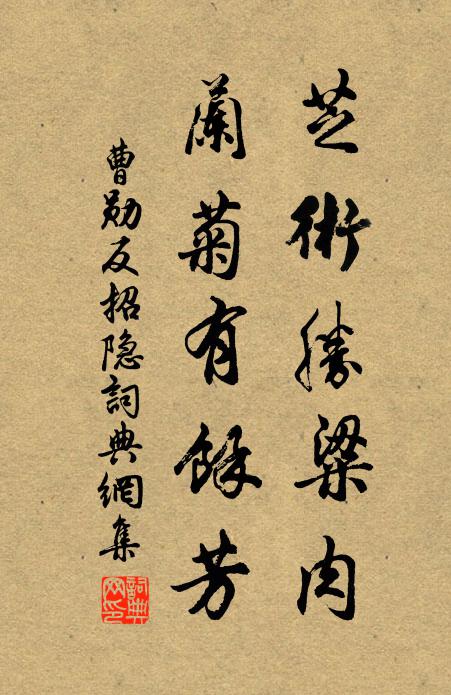 芝術勝粱肉
蘭菊有餘芳
曹勛反招隐詞典網集
詞典网印